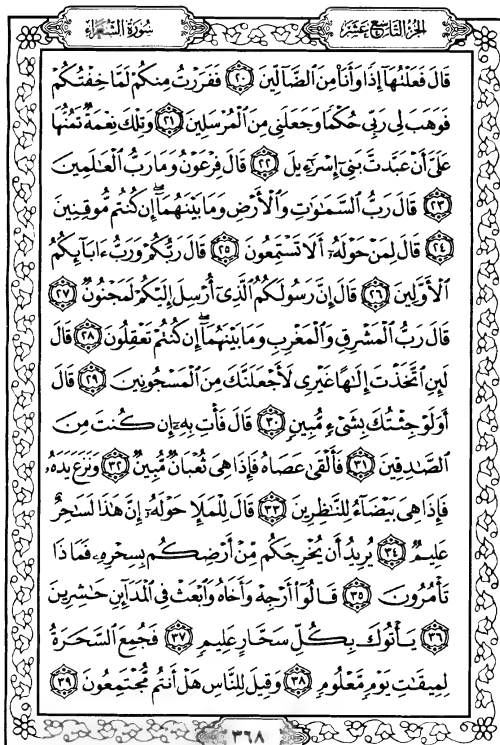 سُورَةُ الشُّعَرَاءِ
الجُزْءُ التَّاسِعَ عَشَرَ
قَالَ فَعَلْتُهَآ إِذًا وَأَنَا۠ مِنَ ٱلضَّآلِّينَ ﴿٢٠﴾ فَفَرَرْتُ مِنكُمْ لَمَّا خِفْتُكُمْ
فَوَهَبَ لِى رَبِّى حُكْمًا وَجَعَلَنِى مِنَ ٱلْمُرْسَلِينَ ﴿٢١﴾ وَتِلْكَ نِعْمَةٌ تَمُنُّهَا
عَلَىَّ أَنْ عَبَّدتَّ بَنِىٓ إِسْرَٰٓءِيلَ ﴿٢٢﴾ قَالَ فِرْعَوْنُ وَمَا رَبُّ ٱلْعَٰلَمِينَ
﴿٢٣﴾ قَالَ رَبُّ ٱلسَّمَٰوَٰتِ وَٱلْأَرْضِ وَمَا بَيْنَهُمَآ ۖ إِن كُنتُم مُّوقِنِينَ
﴿٢٤﴾ قَالَ لِمَنْ حَوْلَهُۥٓ أَلَا تَسْتَمِعُونَ ﴿٢٥﴾ قَالَ رَبُّكُمْ وَرَبُّ ءَابَآئِكُمُ
ٱلْأَوَّلِينَ ﴿٢٦﴾ قَالَ إِنَّ رَسُولَكُمُ ٱلَّذِىٓ أُرْسِلَ إِلَيْكُمْ لَمَجْنُونٌ ﴿٢٧﴾
قَالَ رَبُّ ٱلْمَشْرِقِ وَٱلْمَغْرِبِ وَمَا بَيْنَهُمَآ ۖ إِن كُنتُمْ تَعْقِلُونَ ﴿٢٨﴾ قَالَ
لَئِنِ ٱتَّخَذْتَ إِلَٰهًا غَيْرِى لَأَجْعَلَنَّكَ مِنَ ٱلْمَسْجُونِينَ ﴿٢٩﴾ قَالَ
أَوَلَوْ جِئْتُكَ بِشَىْءٍ مُّبِينٍ ﴿٣٠﴾ قَالَ فَأْتِ بِهِۦٓ إِن كُنتَ مِنَ
ٱلصَّٰدِقِينَ ﴿٣١﴾ فَأَلْقَىٰ عَصَاهُ فَإِذَا هِىَ ثُعْبَانٌ مُّبِينٌ ﴿٣٢﴾ وَنَزَعَ يَدَهُۥ
فَإِذَا هِىَ بَيْضَآءُ لِلنَّٰظِرِينَ ﴿٣٣﴾ قَالَ لِلْمَلَإِ حَوْلَهُۥٓ إِنَّ هَٰذَا لَسَٰحِرٌ
عَلِيمٌ ﴿٣٤﴾ يُرِيدُ أَن يُخْرِجَكُم مِّنْ أَرْضِكُم بِسِحْرِهِۦ فَمَاذَا
تَأْمُرُونَ ﴿٣٥﴾ قَالُوٓا۟ أَرْجِهْ وَأَخَاهُ وَٱبْعَثْ فِى ٱلْمَدَآئِنِ حَٰشِرِينَ
﴿٣٦﴾ يَأْتُوكَ بِكُلِّ سَحَّارٍ عَلِيمٍ ﴿٣٧﴾ فَجُمِعَ ٱلسَّحَرَةُ
لِمِيقَٰتِ يَوْمٍ مَّعْلُومٍ ﴿٣٨﴾ وَقِيلَ لِلنَّاسِ هَلْ أَنتُم مُّجْتَمِعُونَ ﴿٣٩﴾
٣٦٨